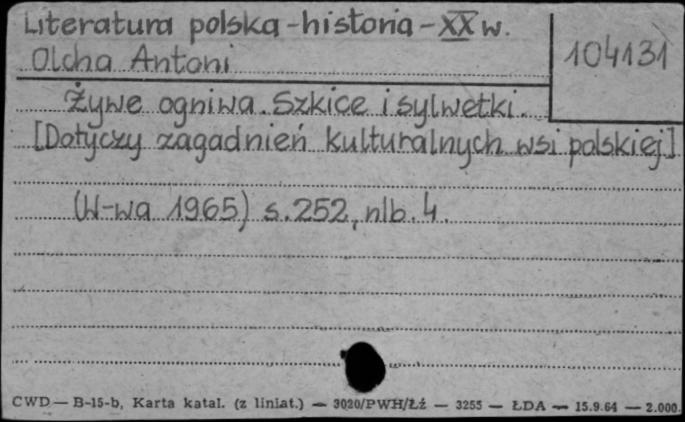 Literatura polska-historia-XX w.
Olcha Antoni
104131
Żywe ogniwa. Szkice i sylwetki.
[Dotyczy zagadnień kulturalnych wsi polskiej]
(W-wa 1965) s. 252, nlb. 4.
CWD — B-15-b, Karta katal. (z liniat.) — 3020/PWH/Łź — 3255 — ŁDA — 15.9.64 — 2.000.